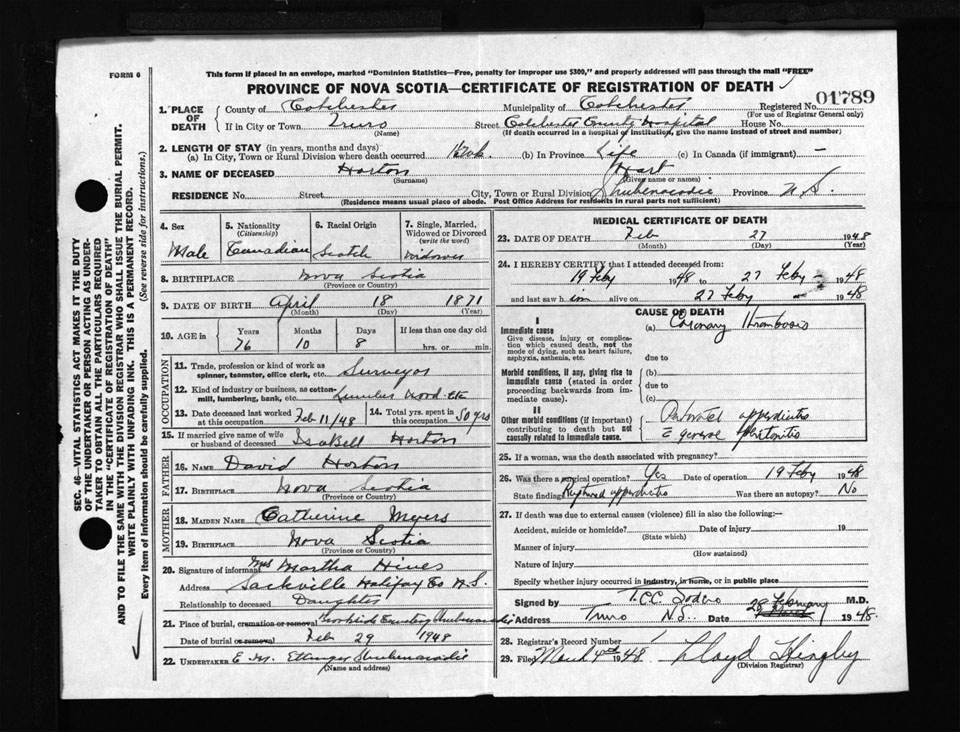 FORM 6
This form if placed in an envelope, marked "Dominion Statistics—Free, penalty for improper use $300," and properly addressed will pass through the mail "FREE"
PROVINCE OF NOVA SCOTIA—CERTIFICATE OF REGISTRATION OF DEATH
1. PLACE OF DEATH County of Colchester Municipality of Colchester Registered No. 01789
(For use of Registrar General only)
If in City or Town Truro Street Colchester County Hospital House No.
(Name) (If death occurred in a hospital or institution, give the name instead of street and number)
2. LENGTH OF STAY (in years, months and days)
(a) In City, Town or Rural Division where death occurred (b) In Province Life (c) In Canada (if immigrant) —
3. NAME OF DECEASED Horton Hart
(Surname) (Given name or names)
RESIDENCE No. Street City, Town or Rural Division Shubenacadie Province N.S.
(Residence means usual place of abode. Post Office Address for residents in rural parts not sufficient)
SEC. 46—VITAL STATISTICS ACT MAKES IT THE DUTY
OF THE UNDERTAKER OR PERSON ACTING AS UNDER-
TAKER TO OBTAIN ALL THE PARTICULARS REQUIRED
IN THE "CERTIFICATE OF REGISTRATION OF DEATH"
AND TO FILE THE SAME WITH THE DIVISION REGISTRAR WHO SHALL ISSUE THE BURIAL PERMIT.
WRITE PLAINLY WITH UNFADING INK. THIS IS A PERMANENT RECORD.
Every item of information should be carefully supplied. (See reverse side for instructions.)
4. Sex 5. Nationality (Citizenship) 6. Racial Origin 7. Single, Married, Widowed or Divorced (write the word)
Male Canadian Scotch Widower
8. BIRTHPLACE Nova Scotia
(Province or Country)
9. DATE OF BIRTH April 18 1871
(Month) (Day) (Year)
10. AGE in Years Months Days If less than one day old
76 10 8 hrs. or min.
OCCUPATION
11. Trade, profession or kind of work as spinner, teamster, office clerk, etc. Surveyor
12. Kind of industry or business, as cotton-mill, lumbering, bank, etc. Lumber Wood. Etc
13. Date deceased last worked at this occupation Feb 11/48 14. Total yrs. spent in this occupation 50 yrs
15. If married give name of wife or husband of deceased Isabell Horton
FATHER
16. NAME David Horton
17. BIRTHPLACE Nova Scotia
(Province or Country)
MOTHER
18. MAIDEN NAME Catherine Myers
19. BIRTHPLACE Nova Scotia
(Province or Country)
20. Signature of informant Mrs Martha Hines
Address Sackville Halifax Co N.S.
Relationship to deceased Daughter
21. Place of burial, cremation or removal Cemetery Shubenacadie
Date of burial or removal Feb 29 1948
22. UNDERTAKER E. M. Ettinger Shubenacadie
(Name and address)
MEDICAL CERTIFICATE OF DEATH
23. DATE OF DEATH Feb 27 1948
(Month) (Day) (Year)
24. I HEREBY CERTIFY that I attended deceased from:
19 Feby 1948 to 27 Feby 1948
and last saw him alive on 27 Feby 1948
CAUSE OF DEATH
I
Immediate cause (a) Coronary thrombosis
Give disease, injury or complica-
tion which caused death, not the
mode of dying, such as heart failure,
asphyxia, asthenia, etc. due to
Morbid conditions, if any, giving rise to (b)
immediate cause (stated in order due to
proceeding backwards from im-
mediate cause). (c)
II
Other morbid conditions (if important)
contributing to death but not
causally related to immediate cause. appendicitis
c general peritonitis
25. If a woman, was the death associated with pregnancy?
26. Was there a surgical operation? Yes Date of operation 19 Feby 1948
State findings Ruptured appendicitis Was there an autopsy? No
27. If death was due to external causes (violence) fill in also the following:—
Accident, suicide or homicide? Date of injury 19
(State which)
Manner of injury
(How sustained)
Nature of injury
Specify whether injury occurred in industry, in home, or in public place
Signed by T.C.C. Sodero M.D.
Address Truro N.S. 28 February 1948.
28. Registrar's Record Number 1
29. Filed March 4 1948 Lloyd Kingby
(Division Registrar)